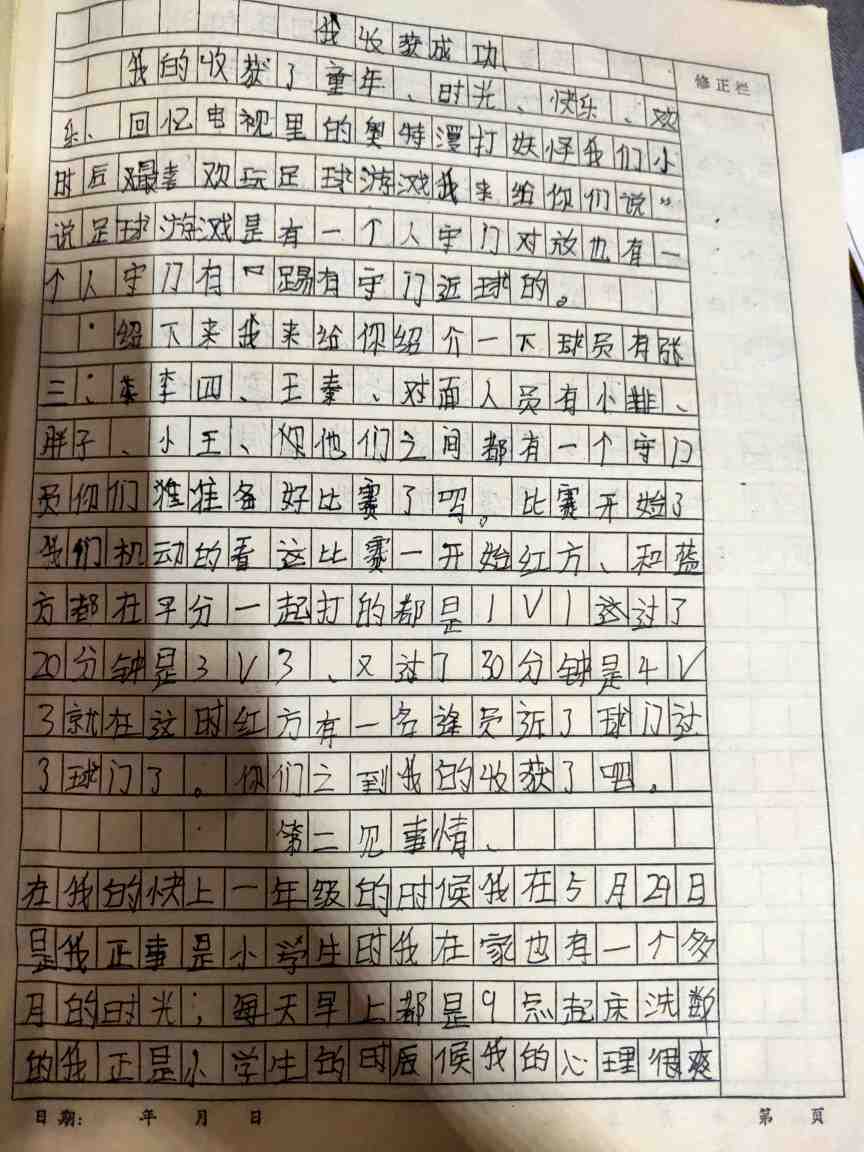 我收获成功、
修正栏
我的收获了童年、时光、快乐、欢
乐、回忆电视里的奥特漫打妖怪我们小
时后最喜欢玩足球游戏我来给你们说“
说足球游戏是有一个人守门对放也有一
个人守门有踢有守门近球的。
绍下来我来给你绍介一下球员有张
三、李四、王秦、对面人员有小韭、
胖子、小王、你他们之间都有一个守门
员你们准备好比赛了吗。比赛开始了
我们机动的看这比赛一开始红方、和蓝
方都在平分一起打的都是1V1这过了
20分钟是3V3、又过了30分钟是4V
3就在这时红方有一名逢员近了球门过
了球门了。你们之到我的收获了吧。
第二见事情、
在我的快上一年级的时候我在5月29日
是我正事是小学生时我在家也有一个多
月的时光；每天早上都是9点起床洗数
的我正是小学生的时后候我的心理很爽
日期: 年 月 日
第 页